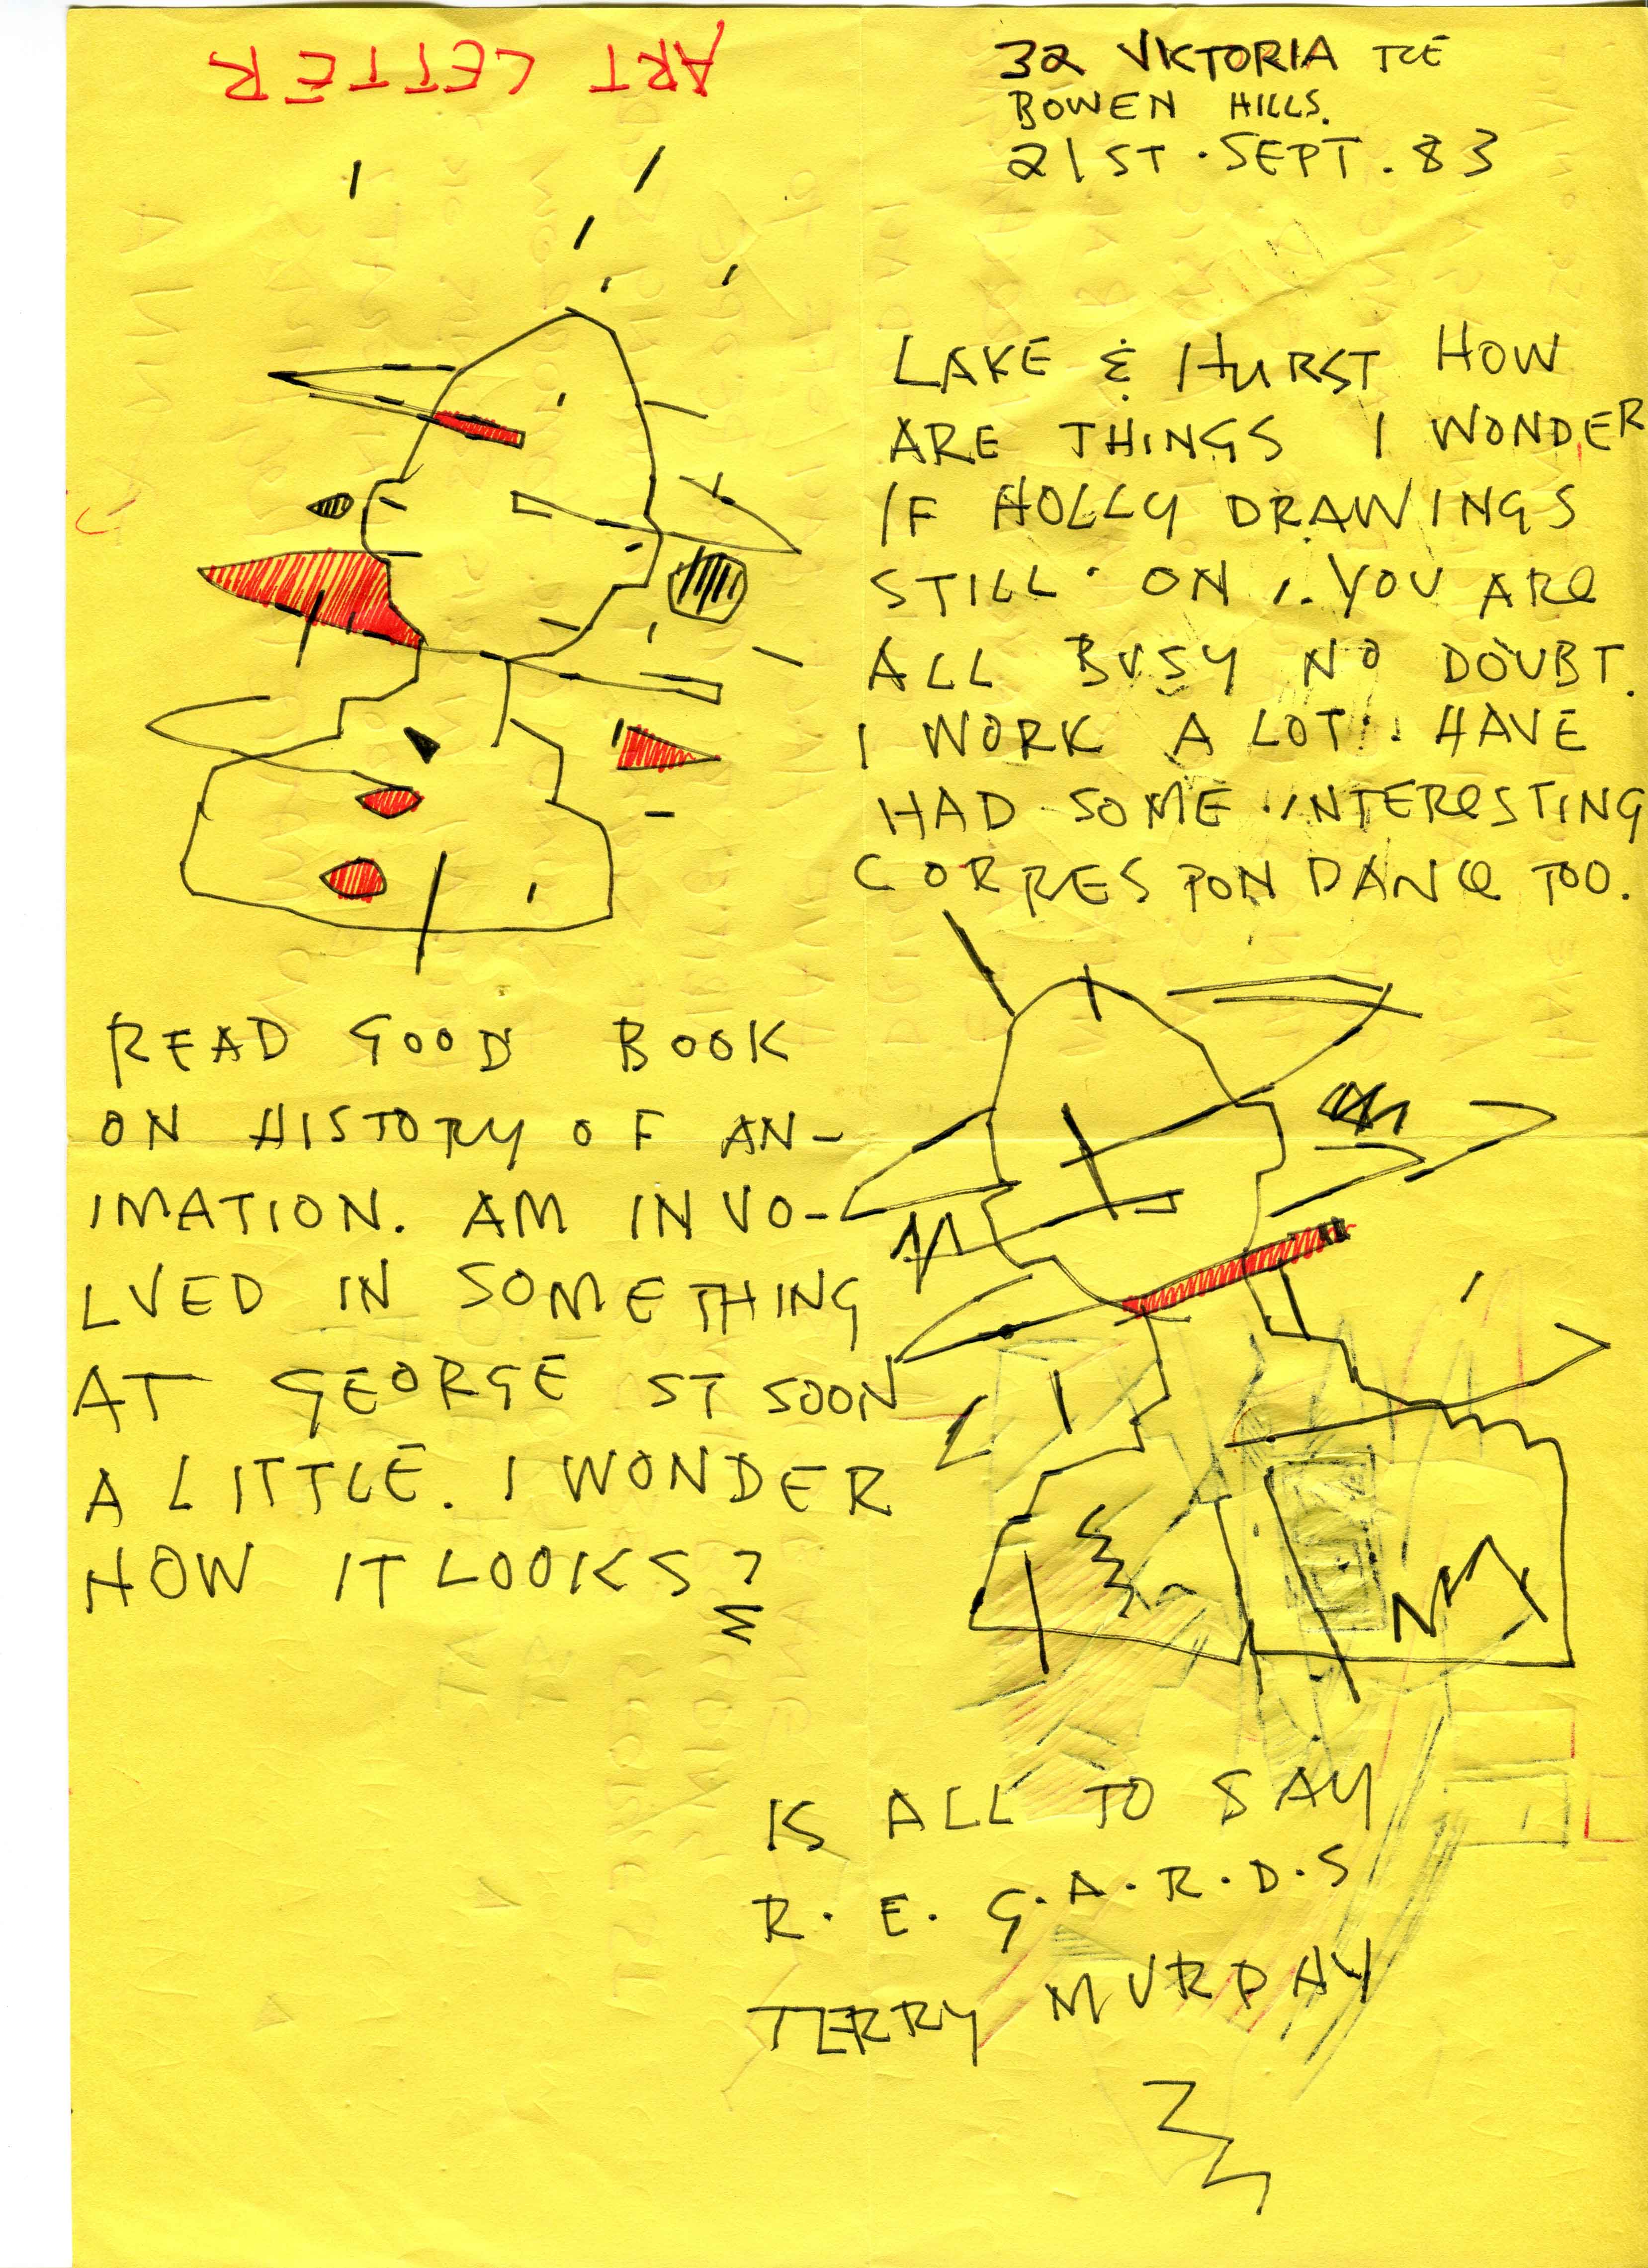 ART LETTER
32 VKTORIA TCE
BOWEN HILLS.
21ST. SEPT. 83
LAKE & HURST HOW
ARE THINGS I WONDER
IF HOLLY DRAWINGS
STILL ON. YOU ARe
ALL BUSY NO DOUBT.
I WORK A LOT. HAVE
HAD SOME INTEReSTING
CORRESPONDANCe TOO.
READ GOOD BOOK
ON HISTORY OF AN-
IMATION. AM INVO-
LVED IN SOMETHING
AT GEORGE ST SOON
A LITTLE. I WONDER
HOW IT LOOKS?
IS ALL TO SAY
R. E. G. A. R. D. S
TERRY MURPHY